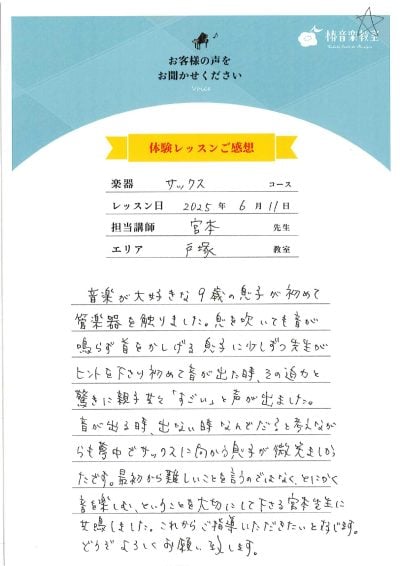 椿音楽教室
お客様の声を
お聞かせください
Voice
体験レッスンご感想
楽器 サックス コース
レッスン日 2025年6月11日
担当講師 宮本 先生
エリア 戸塚 教室
音楽が大好きな9歳の息子が初めて
管楽器を触りました。息を吹いても音が
鳴らず首をかしげる息子に少しずつ先生が
ヒントを下さり初めて音が出た時、その迫力と
驚きに親子共々「すごい」と声が出ました。
音が出る時、出ない時なんでだ?と考えなが
らも夢中でサックスに向かう息子が微笑ましかっ
たです。最初から難しいことを言うのではなく、とにかく
音を楽しむ、ということを大切にして下さる宮本先生に
共鳴しました。これからご指導いただきたいと存じます。
どうぞよろしくお願い致します。